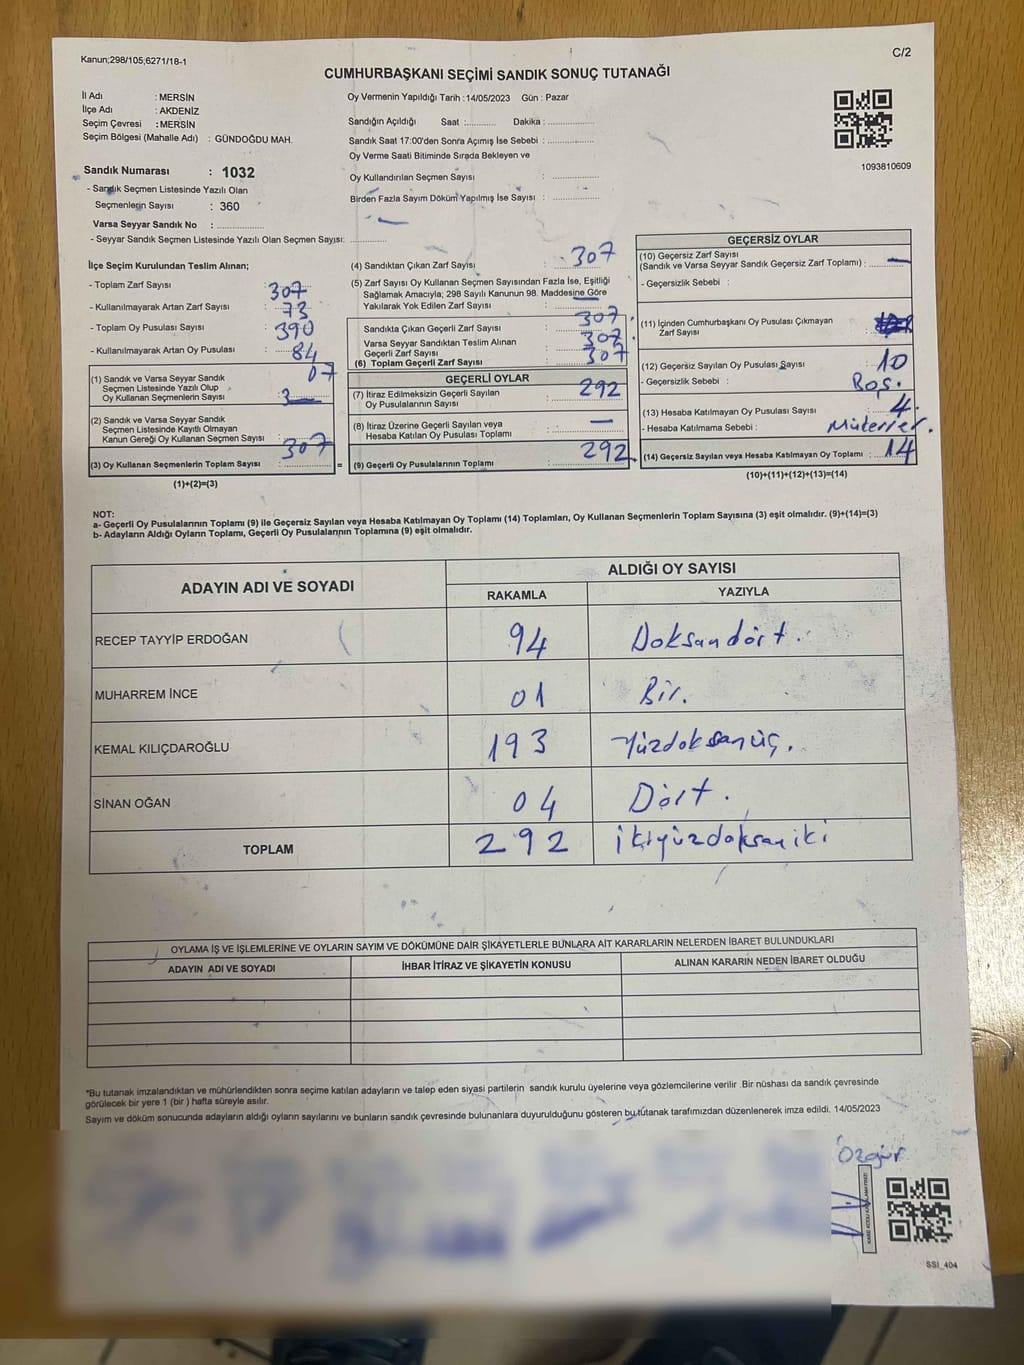 Kanun;298/105;6271/18-1
C/2
CUMHURBAŞKANI SEÇİMİ SANDIK SONUÇ TUTANAĞI
İl Adı : MERSİN
İlçe Adı : AKDENİZ
Seçim Çevresi : MERSİN
Seçim Bölgesi (Mahalle Adı) : GÜNDOĞDU MAH.
Sandık Numarası : 1032
- Sandık Seçmen Listesinde Yazılı Olan
Seçmenlerin Sayısı : 360
Varsa Seyyar Sandık No :
- Seyyar Sandık Seçmen Listesinde Yazılı Olan Seçmen Sayısı:
Oy Vermenin Yapıldığı Tarih :14/05/2023 Gün : Pazar
Sandığın Açıldığı Saat : Dakika :
Sandık Saat 17:00'den Sonra Açımış İse Sebebi :
Oy Verme Saati Bitiminde Sırada Bekleyen ve
Oy Kullandırılan Seçmen Sayısı :
Birden Fazla Sayım Döküm Yapılmış İse Sayısı :
1093810609
İlçe Seçim Kurulundan Teslim Alınan;
- Toplam Zarf Sayısı : 307
- Kullanılmayarak Artan Zarf Sayısı : 73
- Toplam Oy Pusulası Sayısı : 390
- Kullanılmayarak Artan Oy Pusulası : 84
(1) Sandık ve Varsa Seyyar Sandık 07
Seçmen Listesinde Yazılı Olup
Oy Kullanan Seçmenlerin Sayısı : 3
(2) Sandık ve Varsa Seyyar Sandık
Seçmen Listesinde Kayıtlı Olmayan
Kanun Gereği Oy Kullanan Seçmen Sayısı :
(3) Oy Kullanan Seçmenlerin Toplam Sayısı : 307 =
(1)+(2)=(3)
(4) Sandıktan Çıkan Zarf Sayısı : 307
(5) Zarf Sayısı Oy Kullanan Seçmen Sayısından Fazla İse, Eşitliği
Sağlamak Amacıyla; 298 Sayılı Kanunun 98. Maddesine Göre
Yakılarak Yok Edilen Zarf Sayısı :
Sandıkta Çıkan Geçerli Zarf Sayısı : 307
Varsa Seyyar Sandıktan Teslim Alınan
Geçerli Zarf Sayısı : 307
(6) Toplam Geçerli Zarf Sayısı : 307
GEÇERLİ OYLAR
(7) İtiraz Edilmeksizin Geçerli Sayılan
Oy Pusulalarının Sayısı : 292
(8) İtiraz Üzerine Geçerli Sayılan veya
Hesaba Katılan Oy Pusulası Toplamı : —
(9) Geçerli Oy Pusulalarının Toplamı : 292
GEÇERSİZ OYLAR
(10) Geçersiz Zarf Sayısı
(Sandık ve Varsa Seyyar Sandık Geçersiz Zarf Toplamı) : —
- Geçersizlik Sebebi :
(11) İçinden Cumhurbaşkanı Oy Pusulası Çıkmayan
Zarf Sayısı :
(12) Geçersiz Sayılan Oy Pusulası Sayısı : 10
- Geçersizlik Sebebi : Boş.
(13) Hesaba Katılmayan Oy Pusulası Sayısı : 4.
- Hesaba Katılmama Sebebi :
(14) Geçersiz Sayılan veya Hesaba Katılmayan Oy Toplamı : 14
(10)+(11)+(12)+(13)=(14)
NOT:
a- Geçerli Oy Pusulalarının Toplamı (9) ile Geçersiz Sayılan veya Hesaba Katılmayan Oy Toplamı (14) Toplamları, Oy Kullanan Seçmenlerin Toplam Sayısına (3) eşit olmalıdır. (9)+(14)=(3)
b- Adayların Aldığı Oyların Toplamı, Geçerli Oy Pusulalarının Toplamına (9) eşit olmalıdır.
ADAYIN ADI VE SOYADI
ALDIĞI OY SAYISI
RAKAMLA YAZIYLA
RECEP TAYYİP ERDOĞAN 94 Doksandört.
MUHARREM İNCE 01 Bir.
KEMAL KILIÇDAROĞLU 193 Yüzdoksanüç.
SİNAN OĞAN 04 Dört.
TOPLAM 292 ikiyüzdoksaniki
OYLAMA İŞ VE İŞLEMLERİNE VE OYLARIN SAYIM VE DÖKÜMÜNE DAİR ŞİKAYETLERLE BUNLARA AİT KARARLARIN NELERDEN İBARET BULUNDUKLARI
ADAYIN ADI VE SOYADI İHBAR İTİRAZ VE ŞİKAYETİN KONUSU ALINAN KARARIN NEDEN İBARET OLDUĞU
*Bu tutanak imzalandıktan ve mühürlendikten sonra seçime katılan adayların ve talep eden siyasi partilerin sandık kurulu üyelerine veya gözlemcilerine verilir .Bir nüshası da sandık çevresinde
görülecek bir yere 1 (bir ) hafta süreyle asılır.
Sayım ve döküm sonucunda adayların aldığı oyların sayılarını ve bunların sandık çevresinde bulunanlara duyurulduğunu gösteren bu tutanak tarafımızdan düzenlenerek imza edildi. 14/05/2023
Özgür
SSI_404